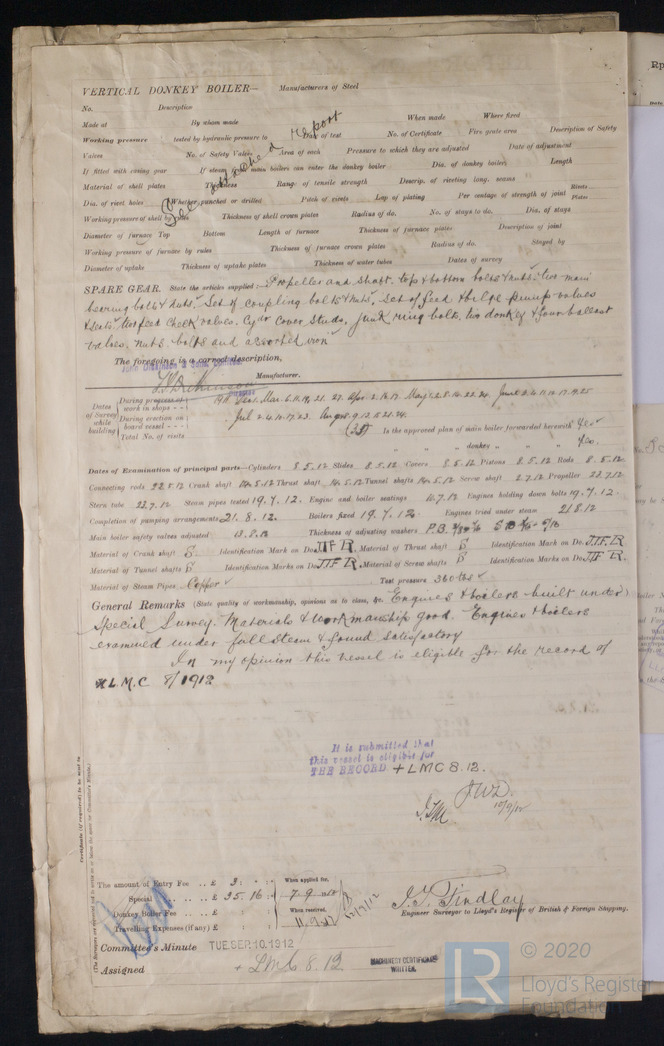 VERTICAL DONKEY BOILER— Manufacturers of Steel
No. Description
Made at By whom made When made Where fixed
Working pressure tested by hydraulic pressure to Date of test No. of Certificate Fire grate area Description of Safety
Valves No. of Safety Valves Area of each Pressure to which they are adjusted Date of adjustment
If fitted with easing gear If steam from main boilers can enter the donkey boiler Dia. of donkey boiler Length
Material of shell plates Thickness Range of tensile strength Descrip. of riveting long. seams
Dia. of rivet holes Whether punched or drilled Pitch of rivets Lap of plating Per centage of strength of joint Rivets Plates
Working pressure of shell by rules Thickness of shell crown plates Radius of do. No. of stays to do. Dia. of stays
Diameter of furnace Top Bottom Length of furnace Thickness of furnace plates Description of joint
Working pressure of furnace by rules Thickness of furnace crown plates Radius of do. Stayed by
Diameter of uptake Thickness of uptake plates Thickness of water tubes Dates of survey
See attached report
SPARE GEAR. State the articles supplied:— Propeller and Shaft, top & bottom bolts & nuts, two main
bearing bolts & nuts, Set of coupling bolts & nuts, Set of feed & bilge pump valves
& seats, two feed check valves, Cydr Cover Studs, junk ring bolts, two donkey & four ballast
valves, nuts bolts and assorted iron
The foregoing is a correct description,
Manufacturer.
Dates of Survey while building
During progress of work in shops - -
During erection on board vessel - - -
Total No. of visits
Jul 2.4.10.17.23. Is the approved plan of main boiler forwarded herewith Yes
" " " donkey " " " Yes.
Dates of Examination of principal parts—Cylinders 8.5.12 Slides 8.5.12 Covers 8.5.12 Pistons 8.5.12 Rods 8.5.12
Connecting rods 22.5.12 Crank shaft 14.5.12 Thrust shaft 14.5.12 Tunnel shafts 14.5.12 Screw shaft 2.7.12 Propeller 23.7.12
Stern tube 23.7.12 Steam pipes tested 19.7.12. Engine and boiler seatings 10.7.12 Engines holding down bolts 19.7.12.
Completion of pumping arrangements 21.8.12. Boilers fixed 19.7.12. Engines tried under steam 21.8.12
Main boiler safety valves adjusted 13.8.12 Thickness of adjusting washers
Material of Crank shaft S Identification Mark on Do. JTF R. Material of Thrust shaft S Identification Mark on Do. JTF R.
Material of Tunnel shafts S Identification Marks on Do. JTF R. Material of Screw shafts S Identification Marks on Do. JTF R.
Material of Steam Pipes Copper ✓ Test pressure 360 lbs ✓
General Remarks (State quality of workmanship, opinions as to class, &c. Engines & boilers built under
Special Survey. Materials & workmanship good. Engines & boilers
examined under full steam & found satisfactory
In my opinion this vessel is eligible for the record of
+ L.M.C 8/1912
It is submitted that
this vessel is eligible for
THE RECORD + LMC 8.12.
JWD.
10/9/12
The amount of Entry Fee .. £ 3 : " : When applied for,
Special .. £ 35.16 :
Donkey Boiler Fee .. £ : : When received,
Travelling Expenses (if any) £ : :
J.T. Findlay
Engineer Surveyor to Lloyd's Register of British & Foreign Shipping.
Committee's Minute TUE. SEP. 10. 1912
Assigned + LMC 8.12
MACHINERY CERTIFICATE
WRITTEN.
Certificate (if required) to be sent to
© 2020
LR
Lloyd's Register
Foundation